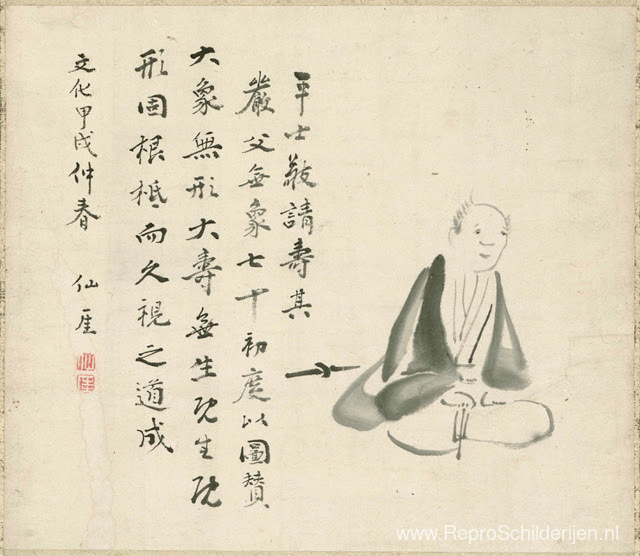 平士敬請壽其
嚴父無象七十初度以圖贊
大象無形大壽無生既生既
形固根柢而久視之道成
文化甲戌仲春 仙厓
www.ReproSchilderijen.nl